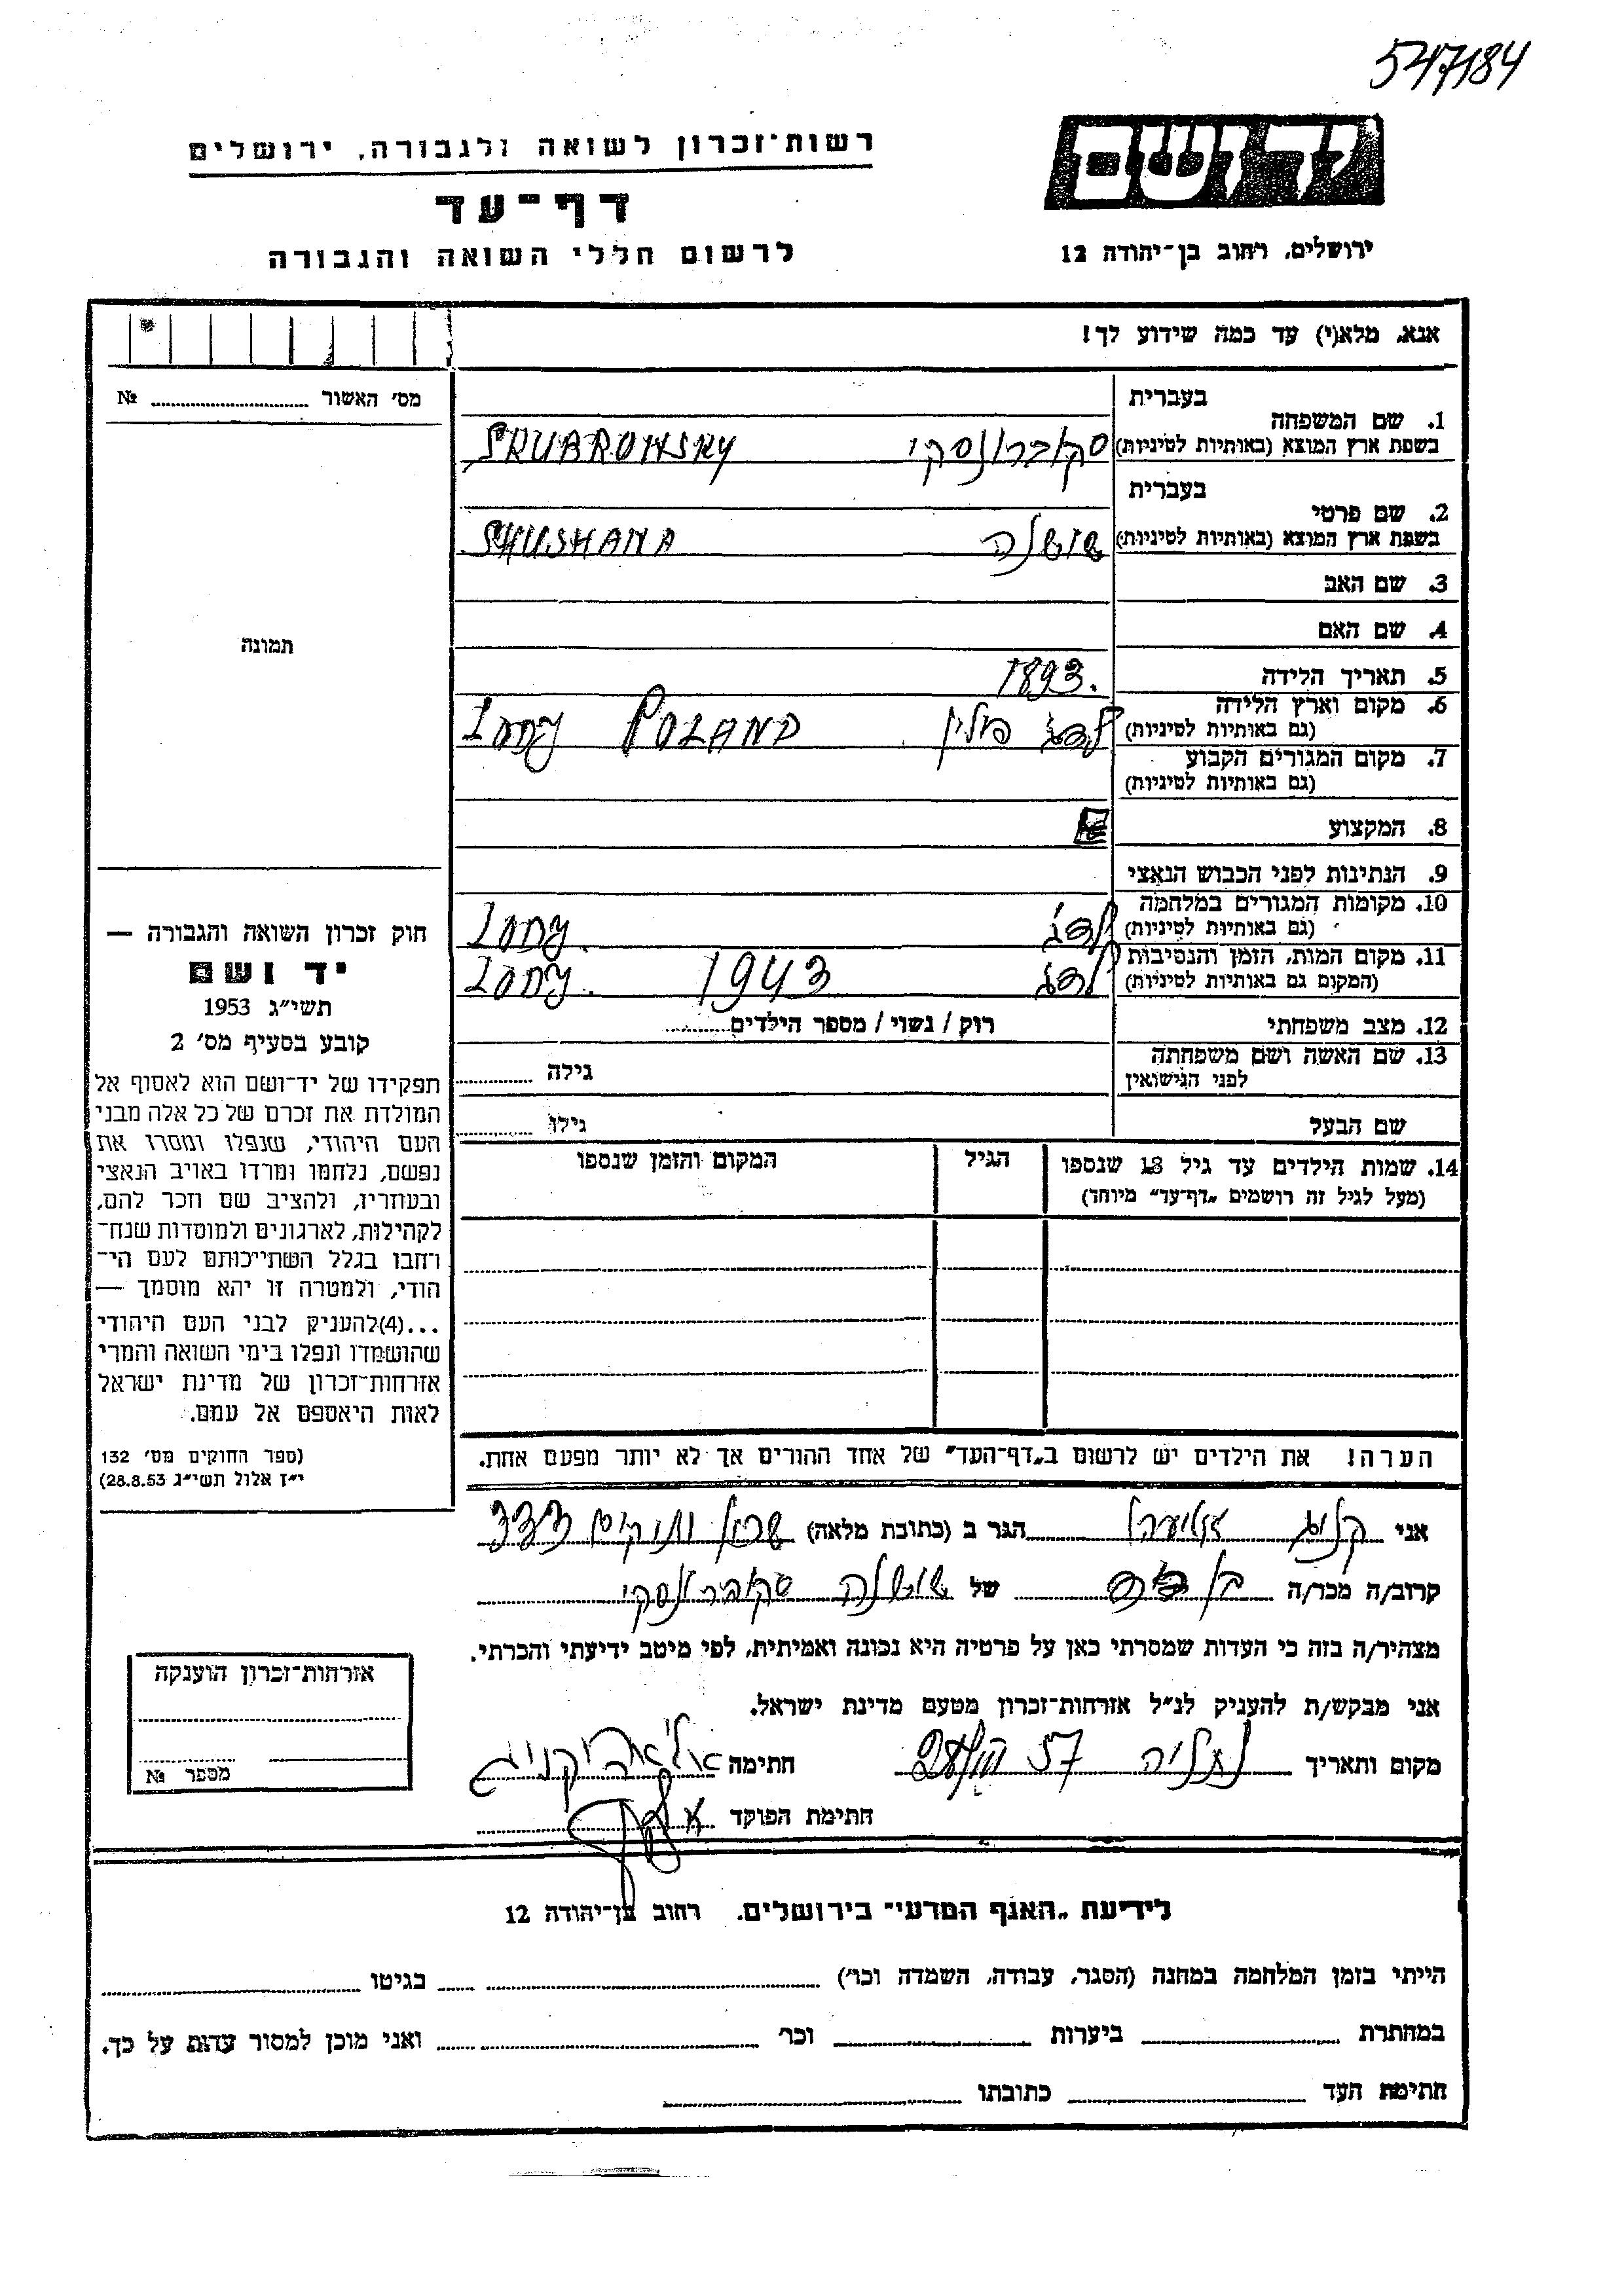 547184
יד ושם
רשות־זכרון לשואה ולגבורה, ירושלים
דף־עד
לרשום חללי השואה והגבורה
ירושלים, רחוב בן־יהודה 12
אנא, מלא(י) עד כמה שידוע לך!
מס׳ האשור № ........
1. שם המשפחה בעברית
בשפת ארץ המוצא (באותיות לטיניות) סקוברונסקי SKUBROWSKY
2. שם פרטי בעברית
בשפת ארץ המוצא (באותיות לטיניות) שושנה SHUSHANA
3. שם האב
4. שם האם
תמונה
5. תאריך הלידה 1893.
6. מקום וארץ הלידה
(גם באותיות לטיניות) לודג׳ פולין POLAND Lody
7. מקום המגורים הקבוע
(גם באותיות לטיניות)
8. המקצוע
9. הנתינות לפני הכבוש הנאצי
10. מקומות המגורים במלחמה
(גם באותיות לטיניות) לודג׳ Lody.
11. מקום המות, הזמן והנסיבות
(המקום גם באותיות לטיניות) לודג׳ 1943 Lody.
12. מצב משפחתי רוק / נשוי / מספר הילדים........
13. שם האשה ושם משפחתה
לפני הנישואין גילה ........
שם הבעל גילו ........
14. שמות הילדים עד גיל 18 שנספו הגיל המקום והזמן שנספו
(מעל לגיל זה רושמים „דף־עד״ מיוחד)
חוק זכרון השואה והגבורה —
יד ושם
תשי״ג 1953
קובע בסעיף מס׳ 2
תפקידו של יד־ושם הוא לאסוף אל
המולדת את זכרם של כל אלה מבני
העם היהודי, שנפלו ומסרו את
נפשם, נלחמו ומרדו באויב הנאצי
ובעוזריו, ולהציב שם וזכר להם,
לקהילות, לארגונים ולמוסדות שנח־
רחבו בגלל השתייכותם לעם הי־
הודי, ולמטרה זו יהא מוסמך —
...(4)להעניק לבני העם היהודי
שהושמדו ונפלו בימי השואה והמרי
אזרחות־זכרון של מדינת ישראל
לאות היאספם אל עמם.
(ספר החוקים מס׳ 132
י״ז אלול תשי״ג 28.8.53)
הערה! את הילדים יש לרשום ב„דף־העד״ של אחד ההורים אך לא יותר מפעם אחת.
אני קניג הגר ב (כתובת מלאה) ותיקים 333
קרוב/ה מכר/ה בן של שושנה סקוברונסקי
מצהיר/ה בזה כי העדות שמסרתי כאן על פרטיה היא נכונה ואמיתית, לפי מיטב ידיעתי והכרתי.
אני מבקש/ת להעניק לנ״ל אזרחות־זכרון מטעם מדינת ישראל.
מקום ותאריך נתניה 57 חתימה קניג
חתימת הפוקד
אזרחות־זכרון הוענקה
מספר №
לידיעת „האגף המדעי״ בירושלים. רחוב בן־יהודה 12
הייתי בזמן המלחמה במחנה (הסגר, עבודה, השמדה וכו׳) ........ בגיטו ........
במחתרת ........ ביערות ........ וכו׳ ........ ואני מוכן למסור עדות על כך.
חתימת העד ........ כתובתו ........